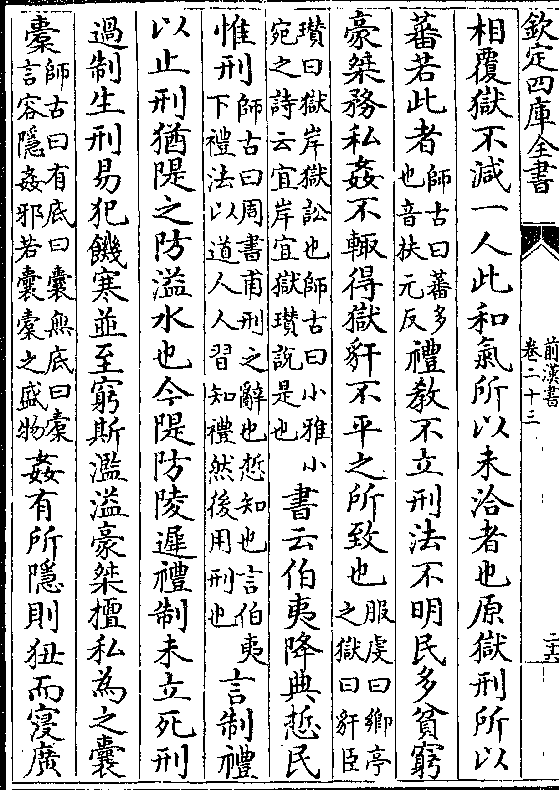 欽定四庫全書
前漢書
卷二十三
二十六
相覆獄不減一人此和氣所以未洽者也原獄刑所以
蕃若此者師古曰蕃多也音扶元反禮教不立刑法不明民多貧窮
豪桀務私姦不輒得獄豻不平之所致也服虔曰鄉亭之獄曰豻臣
瓚曰獄岸獄訟也師古曰小雅小宛之詩云宜岸宜獄瓚說是也書云伯夷降典悊民
惟刑師古曰周書甫刑之辭也悊知也言伯夷下禮法以道人人習知禮然後用刑也言制禮
以止刑猶隄之防溢水也今隄防陵遲禮制未立死刑
過制生刑易犯饑寒並至窮斯濫溢豪桀擅私為之囊
橐師古曰有底曰囊無底曰橐言容隱姦邪若囊橐之盛物姦有所隱則狃而寖廣